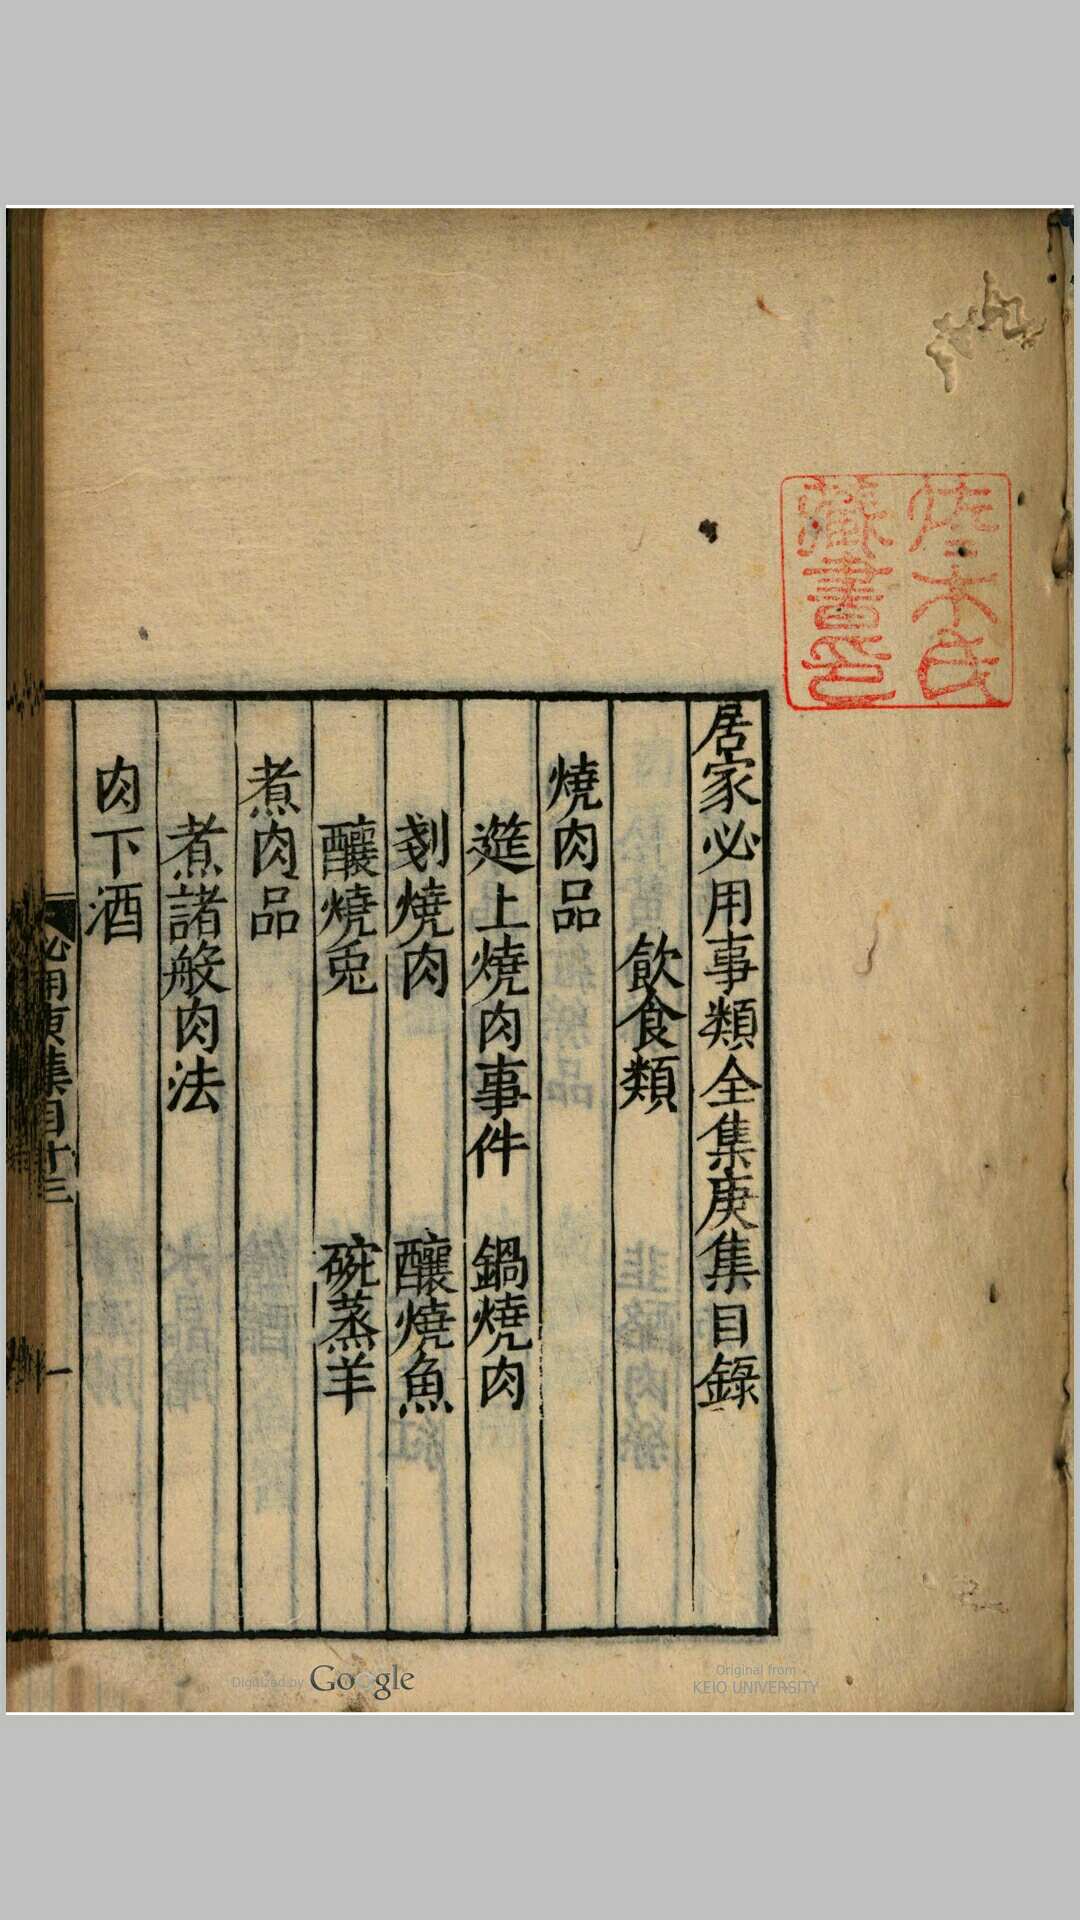 居家必用事類全集庚集目錄
飲食類
燒肉品
筵上燒肉事件 鍋燒肉
剗燒肉 釀燒魚
釀燒兎 碗蒸羊
煮肉品
煮諸般肉法
肉下酒
必用庚集目十三
一
佐々木氏
藏書印
Digitized by Google
Original from
KEIO UNIVERSITY